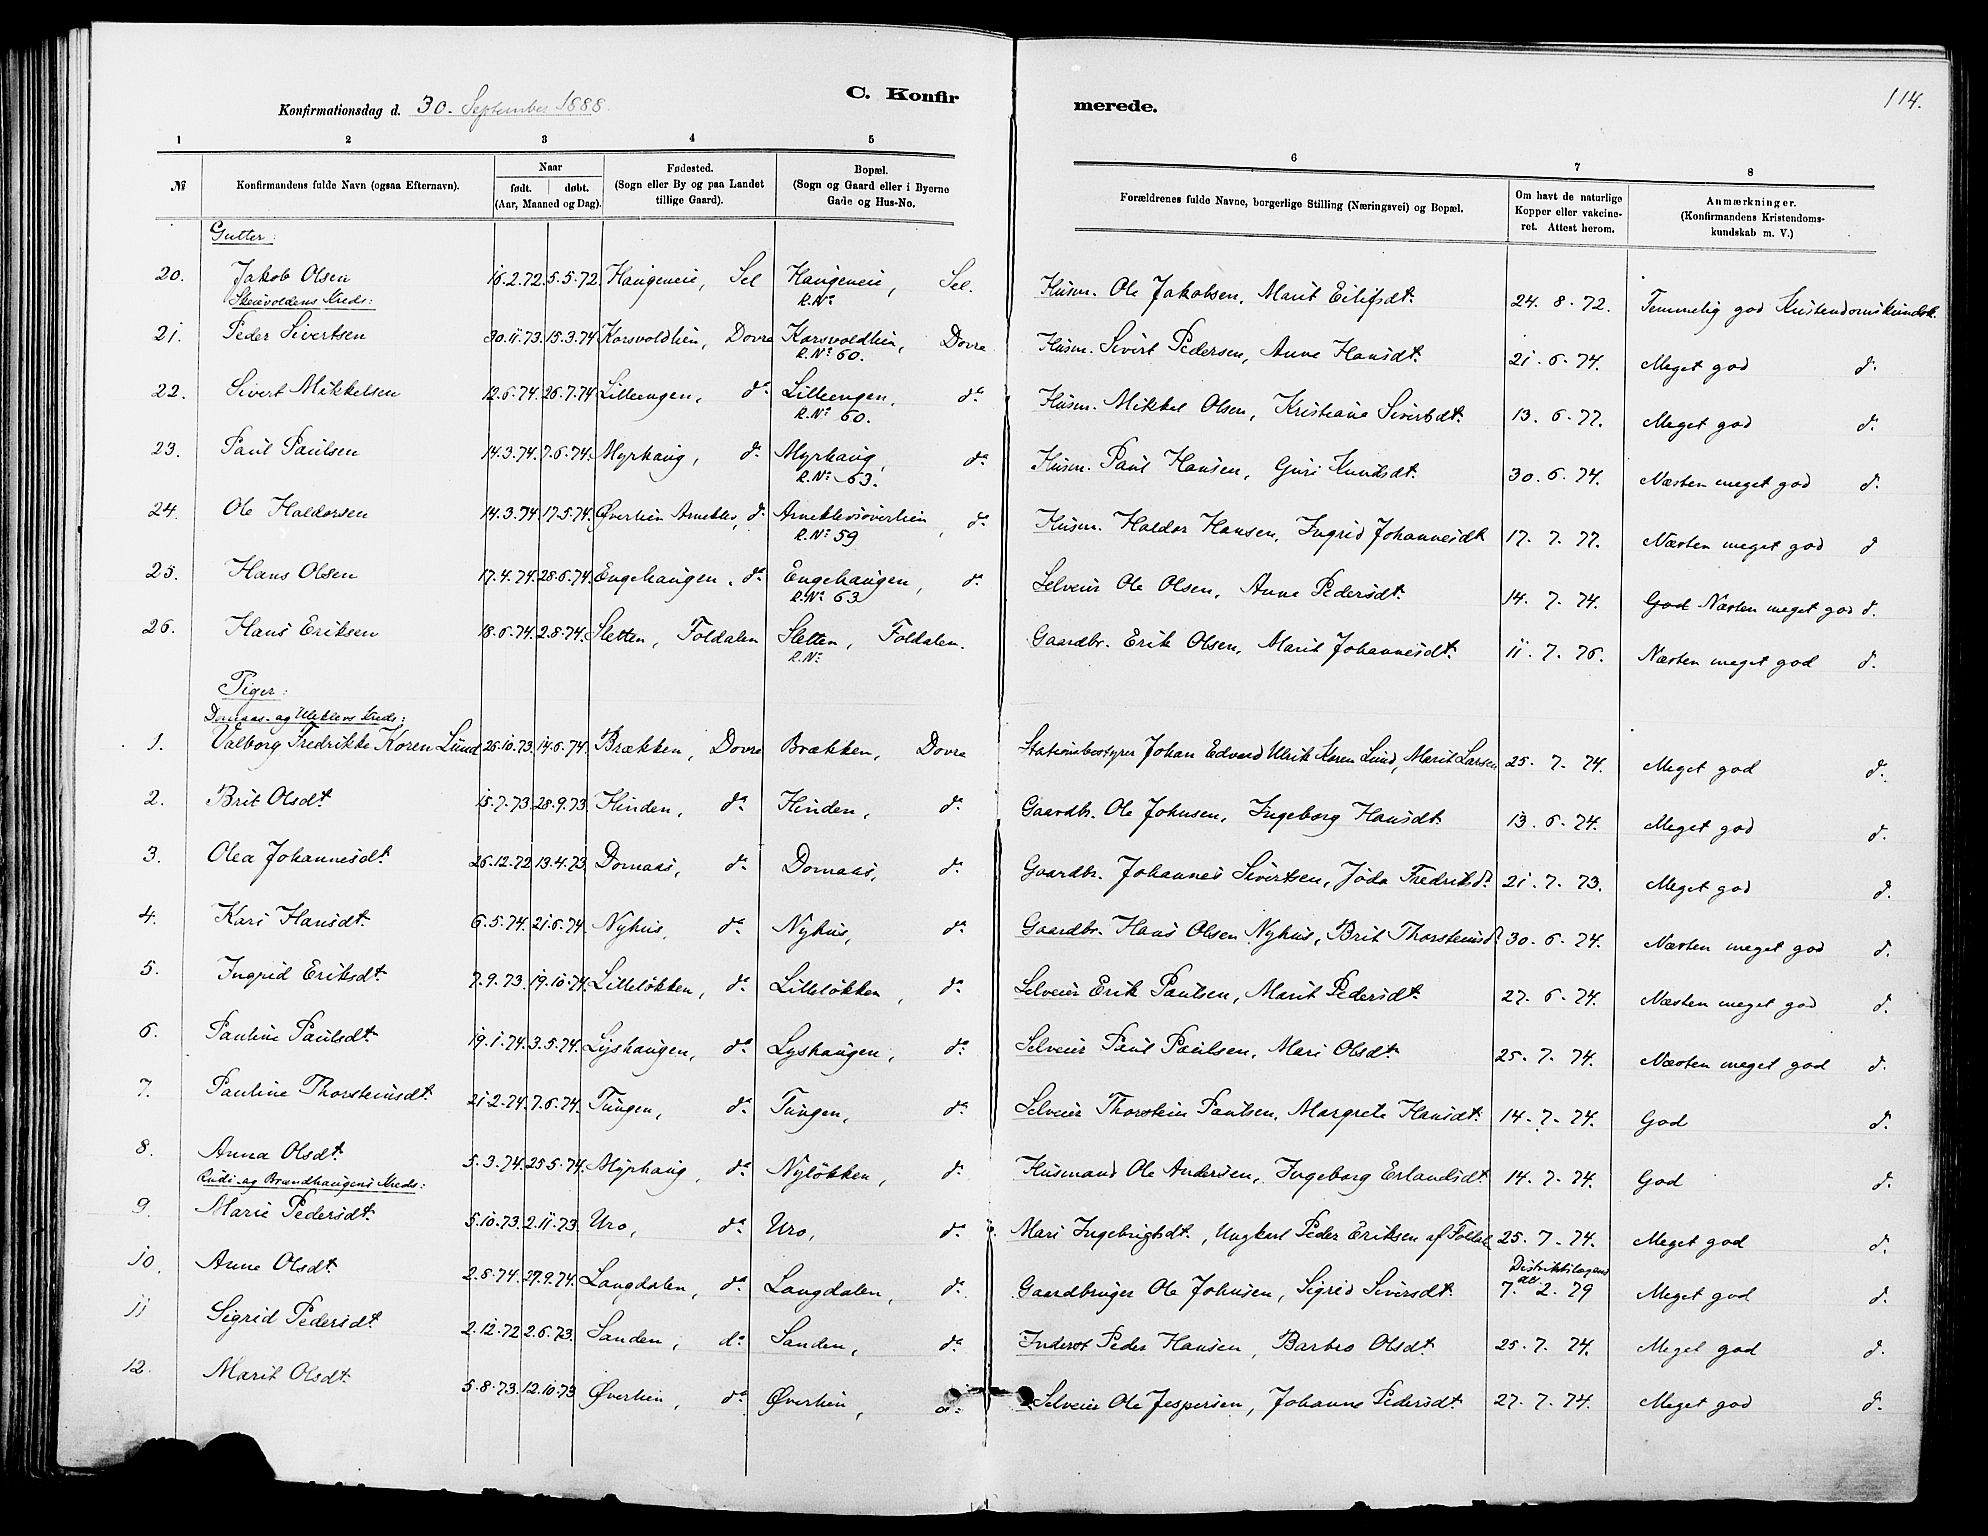 114.
Konfirmationsdag d. 30. September 1888.
C. Konfir merede.
1 2 3 4 5 6 7 8
№ Konfirmandens fulde Navn (ogsaa Efternavn). Naar født. døbt. (Aar, Maaned og Dag). Fødested. (Sogn eller By og paa Landet tillige Gaard). Bopæl. (Sogn og Gaard eller i Byerne Gade og Hus-No. Forældrenes fulde Navne, borgerlige Stilling (Næringsvei) og Bopæl. Om havt de naturlige Kopper eller vakcineret. Attest herom. Anmærkninger. (Konfirmandens Kristendomskundskab m. V.)
Gutter:
20. Jakob Olsen 16.2.72. 5.5.72. Haugeneie, Sel Haugeneie, Sel. Husm. Ole Jakobsen, Marit Eilifsdt. 24. 8. 72. Temmelig god Kristendomskundsk.
R.No
Skeievoldens Kreds:
21. Peder Sivertsen 30.11.73. 15.3.74 Korsvoldhien, Dovre Korsvoldhien, Dovre Husm. Sivert Pedersen, Anne Hansdt. 21. 6. 74. Meget god d.
R.No 60.
22. Sivert Mikkelsen 12.6.74. 26.7.74 Lilleengen, do Lilleengen, do Husm. Mikkel Olsen, Kristiane Sivertsdt. 13. 6. 77. Meget god d.
R.No 60.
23. Paul Paulsen 14.3.74. 7.6.74. Myrhaug, do Myrhaug, do Husm. Paul Hansen, Guri Knutsdt. 30. 6. 74. Næsten meget god d.
R.No 63.
24. Ole Haldorsen 14.3.74. 17.5.74. Øverhien Arneklev, do Arneklevsøverhien, do Husm. Haldor Hansen, Ingrid Johannesdt 17. 7. 77. Næsten meget god d
R.No 59
25. Hans Olsen 17.4.74. 28.6.74. Engehaugen, do Engehaugen, do Selveier Ole Olsen, Anne Pedersdt. 14. 7. 74. God Næsten meget god d.
R.No 63
26. Hans Eriksen 18.6.74. 2.8.74. Sletten, Foldalen Sletten, Foldalen. Gaardbr. Erik Olsen, Marit Johannesdt. 11. 7. 76. Næsten meget god d.
R.No
Piger:
Domaas- og Uleklevs Kreds:
1. Valborg Fredrikke Koren Lund 26.10.73. 14.6.74. Brækken, Dovre Brækken, Dovre Stationsbestyrer Johan Edvard Ulrik Koren Lund, Marit Larsen 25. 7. 74. Meget god d.
2. Brit Olsdt 15.7.73. 28.9.73 Hinden, do Hinden, do Gaardbr. Ole Johnsen, Ingeborg Hansdt. 13. 6. 74. Meget god d.
3. Olea Johannesdt 26.12.72 13.4.73. Domaas, do Domaas, do Gaardbr. Johannes Sivertsen, Joda Fredriksd. 21. 7. 73. Meget god d.
4. Kari Hansdt. 6.5.74. 21.6.74 Nyhus, do Nyhus, do Gaardbr. Hans Olsen Nyhus, Brit Thorsteinsd. 30. 6. 74. Næsten meget god d.
5. Ingrid Eriksdt. 7.9.73. 19.10.74. Lilleløkken, do Lilleløkken, do Selveier Erik Paulsen, Marit Pedersdt. 27. 6. 74. Næsten meget god d.
6. Pauline Paulsdt. 19.1.74. 3.5.74. Lyshaugen, do Lyshaugen, do Selveier Paul Paulsen, Mari Olsdt. 25. 7. 74. Næsten meget god d.
7. Pauline Thorsteinsdt. 21.2.74. 7.6.74. Tungen, do Tungen, do Selveier Thorstein Paulsen, Margrete Hansdt. 14. 7. 74. God d.
8. Anna Olsdt. 5.3.74. 25.5.74. Myrhaug, do Nyløkken, do Husmand Ole Andersen, Ingeborg Erlandsdt. 14. 7. 74. God d.
Rudi- og Brændhaugens Kreds:
9. Marie Pedersdt. 5.10.73. 2.11.73. Uro, do Uro, do Mari Ingebrigtsdt., Ungkarl Peder Eriksen af Foldal 25. 7. 74. Meget god d.
10. Anne Olsdt. 2.8.74. 27.9.74. Langdalen, do Langdalen, do Gaardbruger Ole Johnsen, Sigrid Siversdt. Distriktslægens 7. 2. 79 Meget god d.
11 Sigrid Pedersdt. 2.12.72 2.6.73. Sanden, do Sanden, do Inderst Peder Hansen, Barbro Olsdt. 25. 7. 74. Meget god d.
12. Marit Olsdt. 5.8.73. 12.10.73 Øverhien, do Øverhien, do Selveier Ole Jespersen, Johanne Pedersdt. 27. 7. 74. Meget god d.